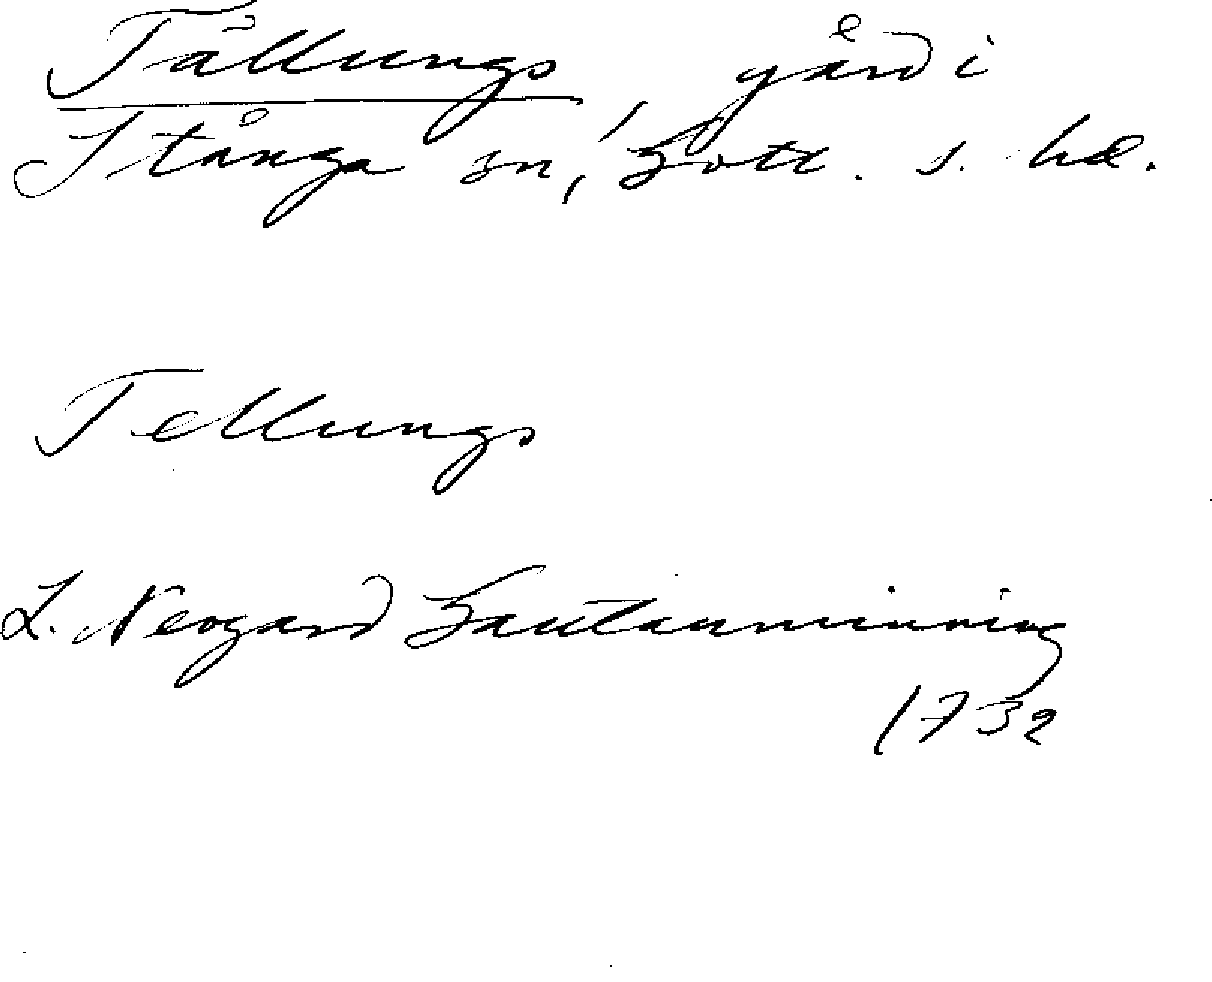 Tällungs gård i
Stånga sn, Gotl. s. hd.
Tellungs
L. Neogard Gautauminning
1732